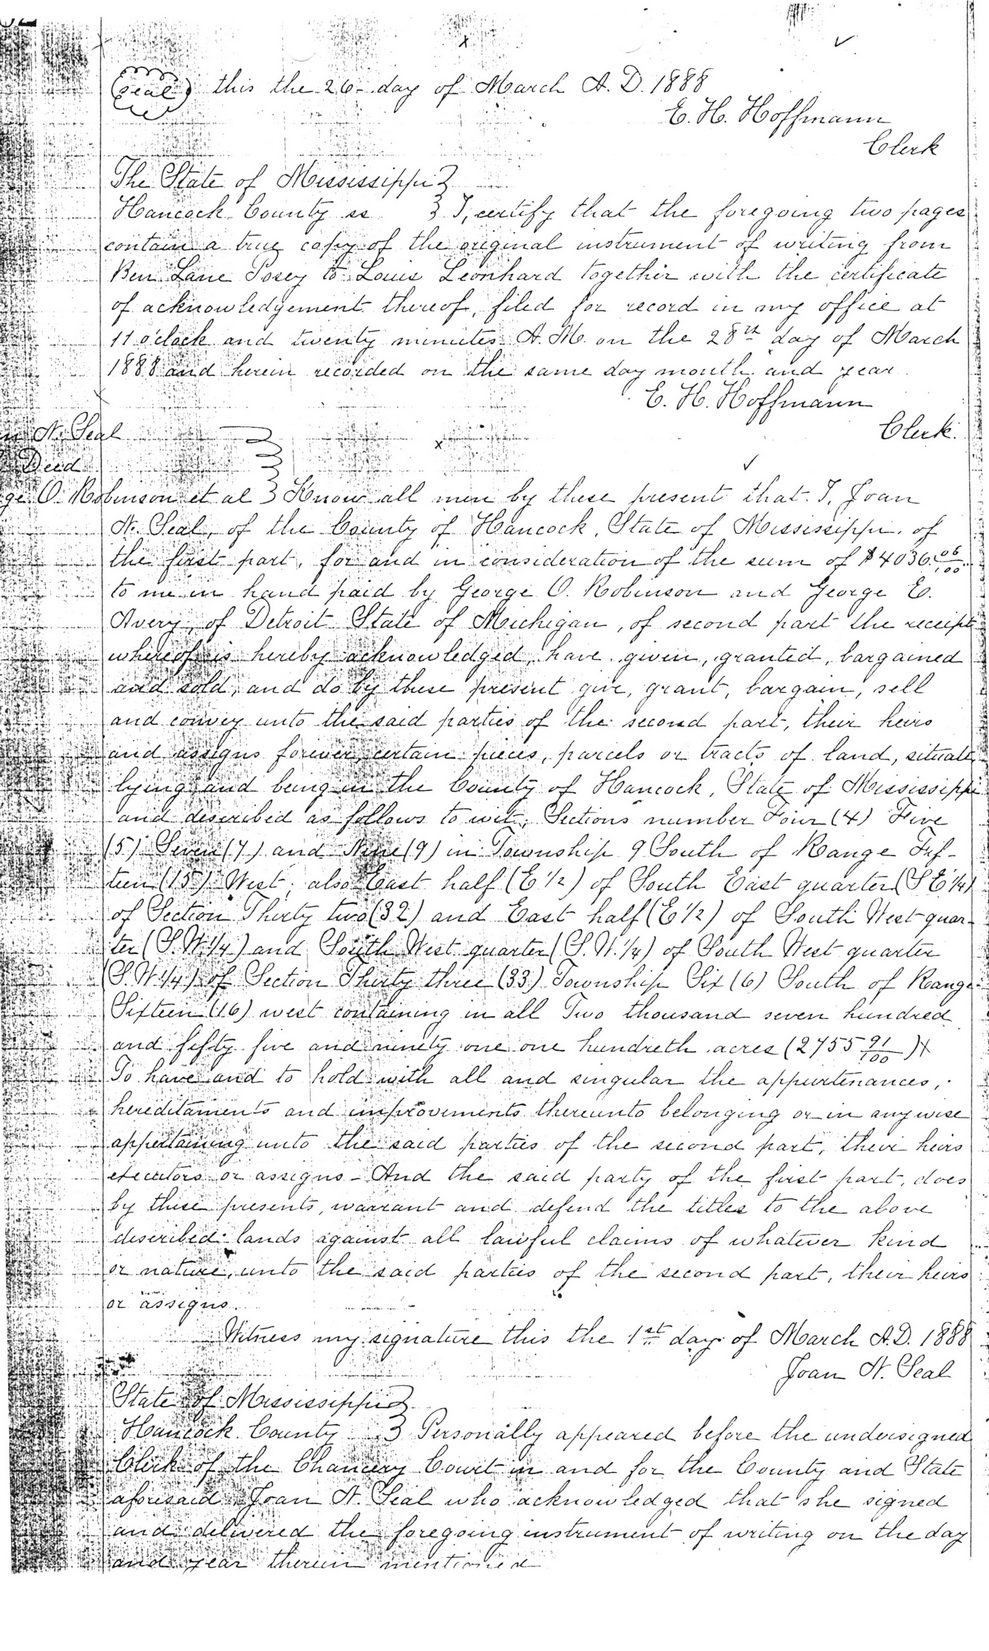 (Seal) this the 26 day of March A.D. 1888
E. H. Hoffmann
Clerk
The State of Mississippi }
Hancock County ss } I, certify that the foregoing two pages
contain a true copy of the original instrument of writing from
Ben Lane Posey to Louis Leonhard together with the certificate
of acknowledgement thereof, filed for record in my office at
11 o'clock and twenty minutes A.M. on the 28th day of March
1888 and herein recorded on the same day month and year
E. H. Hoffmann
Clerk.
N. Seal
Deed
ge O. Robinson et al } Know all men by these present that I, Joan
N. Seal, of the County of Hancock, State of Mississippi, of
the first part, for and in consideration of the sum of $4036 06/100
to me in hand paid by George O. Robinson and George E.
Avery, of Detroit State of Michigan, of second part the receipt
whereof is hereby acknowledged, have given, granted, bargained
and sold, and do by these present give, grant, bargain, sell
and convey unto the said parties of the second part, their heirs
and assigns forever certain pieces, parcels or tracts of land, situate
lying and being in the County of Hancock, State of Mississippi
and described as follows to wit; Sections number Four (4) Five
(5) Seven (7) and Nine (9) in Township 9 South of Range Fif-
teen (15) West; also East half (E 1/2) of South East quarter (S E 1/4)
of Section Thirty two (32) and East half (E 1/2) of South West quar-
ter (S.W. 1/4) and South West quarter (S.W. 1/4) of South West quarter
(S.W. 1/4) of Section Thirty three (33) Township Six (6) South of Range
Sixteen (16) west containing in all Two thousand seven hundred
and fifty five and ninety one one hundreth acres (2755 91/100)
To have and to hold with all and singular the appurtenances,
hereditaments and improvements thereunto belonging or in any wise
appertaining unto the said parties of the second part, their heirs
executors or assigns - And the said party of the first part, does
by these presents, warrant and defend the titles to the above
described lands against all lawful claims of whatever kind
or nature, unto the said parties of the second part, their heirs
or assigns.
Witness my signature this the 1st day of March A.D. 1888
Joan N. Seal
State of Mississippi }
Hancock County } Personally appeared before the undersigned
Clerk of the Chancery Court in and for the County and State
aforesaid Joan N. Seal who acknowledged that she signed
and delivered the foregoing instrument of writing on the day
and year therein mentioned